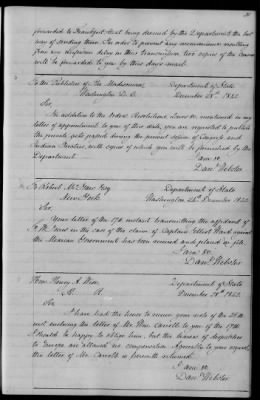 forwarded to Frankfort that being deemed by the Department the best
way of sending them. In order to prevent any inconvenience resulting
from any detention delay in their transmission two copies of the Census
will be forwarded to you by this day's mail.
To the Publisher of the Madisonian, Department of State
Washington D.C. December 28th 1842.
Sir,
In addition to the Acts & Resolutions, mentioned in my
letter of appointment to you of this date, you are requested to publish
the private acts passed during the present session of Congress and
Indian Treaties, with copies of which you will be furnished by the
Department.
I am &c.
Danl. Webster
To Robert McGaw Esq Department of State
New York Washington 28th December 1842.
Sir,
Your letter of the 17th instant transmitting the affidavit of
in the case of the claim of Captain Elliot Ward against
the Mexican Government has been received and placed on file.
I am &c.
Danl. Webster
Hon. Henry A. Wise, Department of State
H. R. December 28th 1842.
Sir,
I have had the honor to receive your note of the 26th
inst. enclosing the letter of Mr. Wm. Carroll to you of the 17th.
I should be happy to oblige him, but the bearers of despatches
to Europe are allowed no compensation. Agreeably to your request
the letter of Mr. Carroll is herewith returned.
I am &c.
Danl. Webster